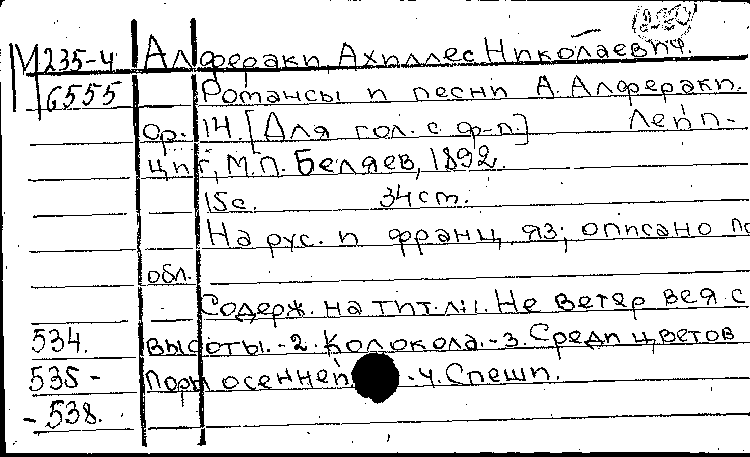 М 235-4 Алфераки, Ахиллес Николаевич.
6555 Романсы и песни А. Алфераки.
ор. 14. [Для гол. с ф-п.] Лейп-
циг, М.П. Беляев, 1892.
15с. 34 см.
На рус. и франц. яз; описано по
обл.
Содерж. на тит. л.: 1. Не ветер вея с
534. высоты.-2. Колокола.-3. Среди цветов
535- поры осенней .-4. Спеши.
-538.